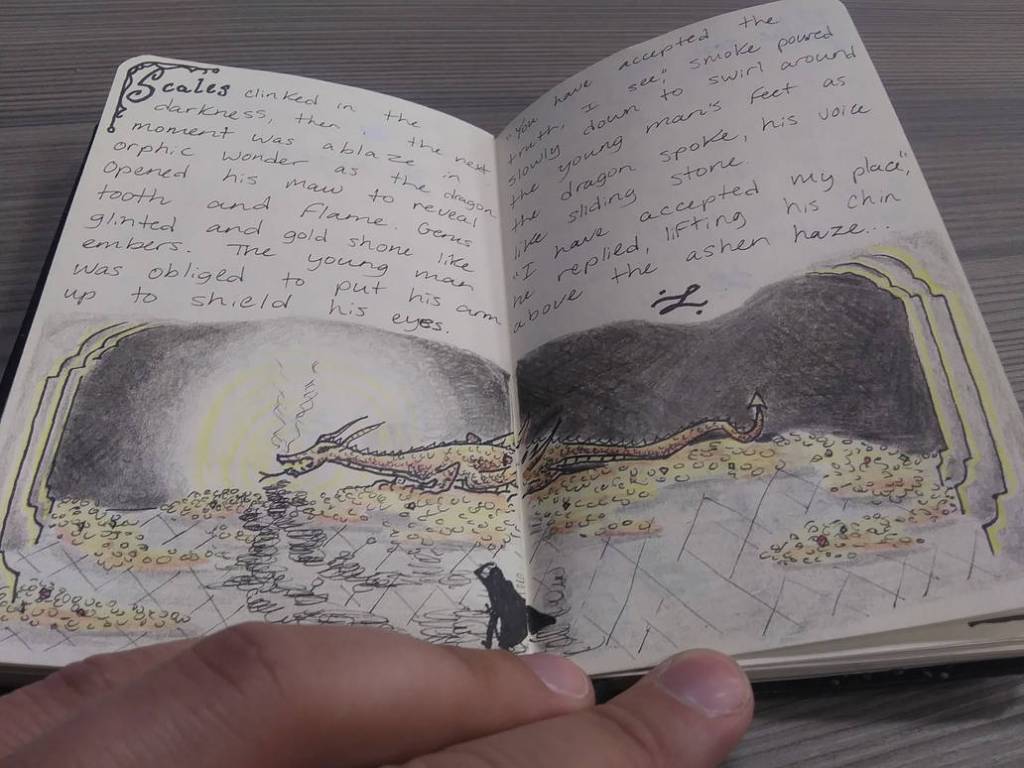 Scales clinked in the
darkness, then the next
moment was ablaze in
orphic wonder as the dragon
opened his maw to reveal
tooth and flame. Gems
glinted and gold shone like
embers. The young man
was obliged to put his arm
up to shield his eyes.
"You have accepted the
truth, I see," smoke poured
slowly down to swirl around
the young man's feet as
the dragon spoke, his voice
like sliding stone.
"I have accepted my place,"
he replied, lifting his chin
above the ashen haze...